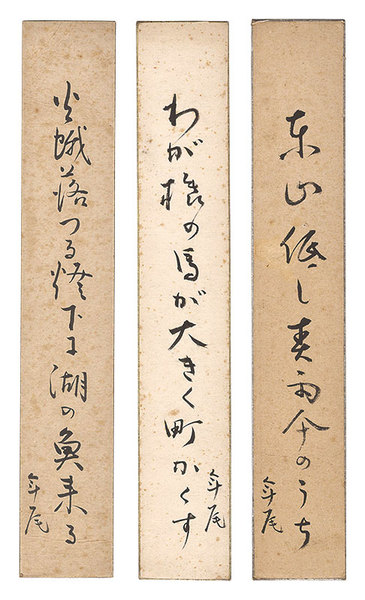 東山低し春雨傘のうち
年尾
わが橇の馬が大きく町かくす
年尾
火蛾落つる燈下に湖の魚来る
年尾